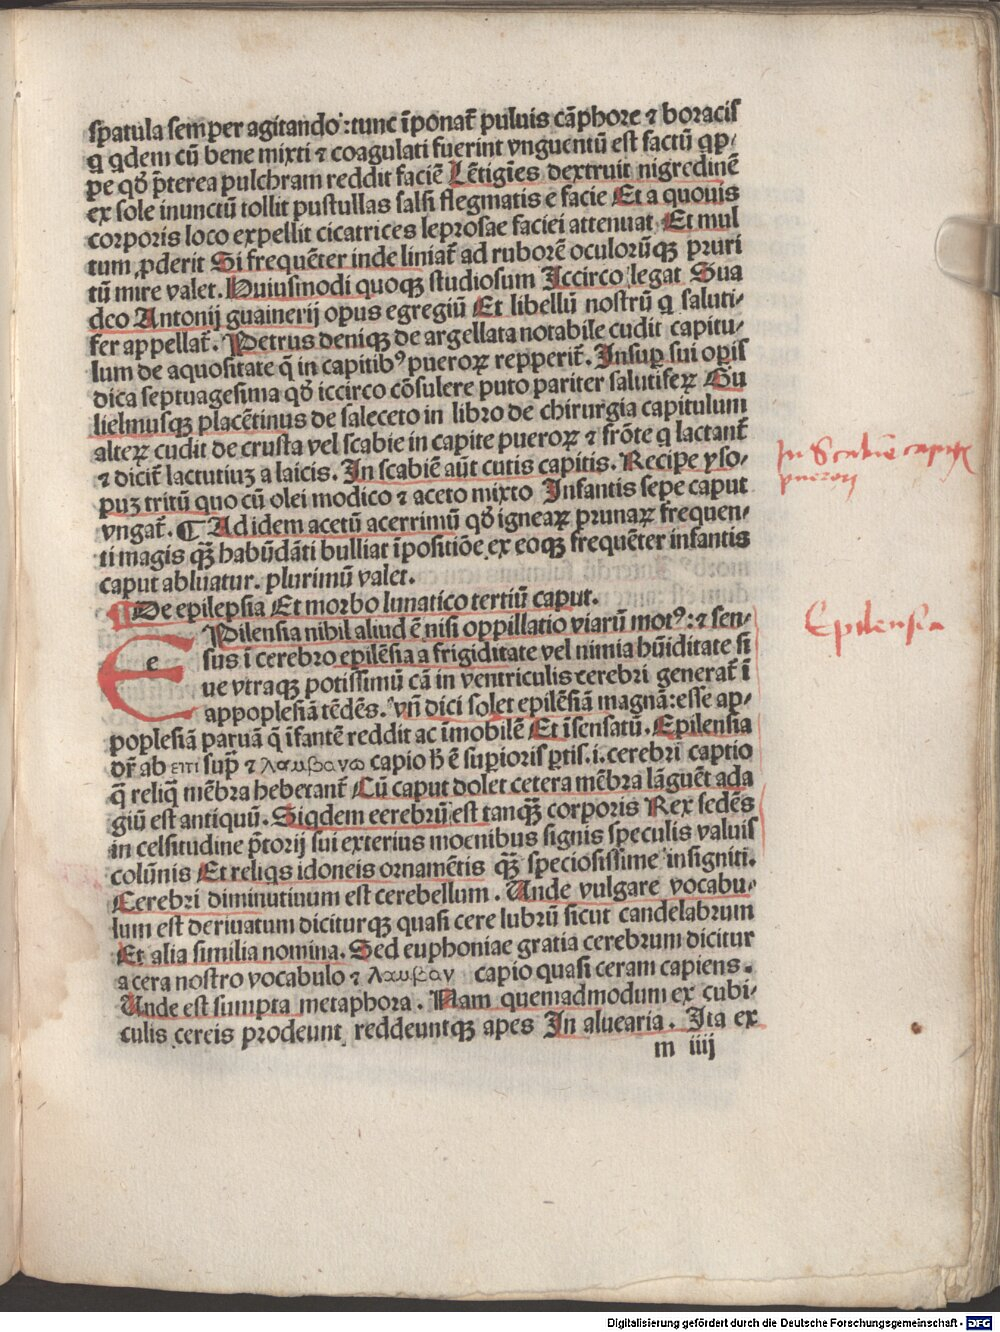 spatula semper agitando: tunc īponat᷑ puluis cāphore ⁊ boracis
q qdem cū bene mixti ⁊ coagulati fuerint vnguentū est factū qp-
pe qđ p̄terea pulchram reddit faciē Lētigīes dextruit nigredinē
ex sole inunctū tollit pustullas salsi flegmatis e facie Et a quouis
corporis loco expellit cicatrices leprosae faciei attenuat Et mul
tum ꝓderit Si frequēter inde liniat᷑ ad ruborē oculorūqꝫ pruri
tū mire valet. Huiusmodi quoqꝫ studiosum Iccirco legat Sua
deo Antonij guainerij opus egregiū Et libellū nostrū q saluti-
fer appellat᷑. Petrus deniqꝫ de argellata notabile cudit capitu-
lum de aquositate q̄ in capitibꝰ pueroꝝ repperit᷑. Insuꝑ sui oꝑis
dica septuagesima qđ iccirco cōsulere puto pariter salutifeꝝ Gu
lielmusqꝫ placētinus de saleceto in libro de chirurgia capitulum
alteꝝ cudit de crusta vel scabie in capite pueroꝝ ⁊ frōte q lactant᷑
⁊ dicit᷑ lactutiuꝫ a laicis. In scabiē aūt cutis capitis. Recipe yso-
puꝫ tritū quo cū olei modico ⁊ aceto mixto Infantis sepe caput
vngat᷑. ¶ Ad idem acetū acerrimū qđ igneaꝝ prunaꝝ frequen-
ti magis qꝫ̄ habūdāti bulliat īpositiōe ex eoqꝫ frequēter infantis
caput abluatur. plurimū valet.
¶ De epilepsia Et morbo lunatico tertiū caput.
e Pilensia nihil aliud ē nisi oppillatio viarū motꝰ: ⁊ sen-
sus ī cerebro epilēsia a frigiditate vel nimia hūiditate si
ue vtraqꝫ potissimū cā in ventriculis cerebri generat᷑ ī
appoplesiā tēdēs. vn̄ dici solet epilēsiā magnā: esse ap-
poplesiā paruā q̄ īfantē reddit ac īmobilē Et īsensatū. Epilensia
dr̄ ab επι sup̄ ⁊ λαυβανω capio ħ ē suꝑioris ꝑtis .i. cerebri captio
q̄ reliq̄ mēbra hebetant᷑ Cū caput dolet cetera mēbra lāguēt ada
giū est antiquū. Siqdem eerebrū est tanqꝫ̄ corporis Rex sedēs
in celsitudine p̄torij sui exterius moenibus signis speculis valuis
colūnis Et reliqs idoneis ornamētis qꝫ̄ speciosissime insigniti.
Cerebri diminutinum est cerebellum. Unde vulgare vocabu-
lum est deriuatum diciturqꝫ quasi cere lubrū sicut candelabrum
Et alia similia nomina. Sed euphoniae gratia cerebrum dicitur
a cera nostro vocabulo ⁊ λαυβαν capio quasi ceram capiens.
Unde est sumpta metaphora. Nam quemadmodum ex cubi-
culis cereis prodeunt reddeuntqꝫ apes In aluearia. Ita ex
m iiij
In Scabiē capitis
puerorū
Epilensia
Digitalisierung gefördert durch die Deutsche Forschungsgemeinschaft - DFG